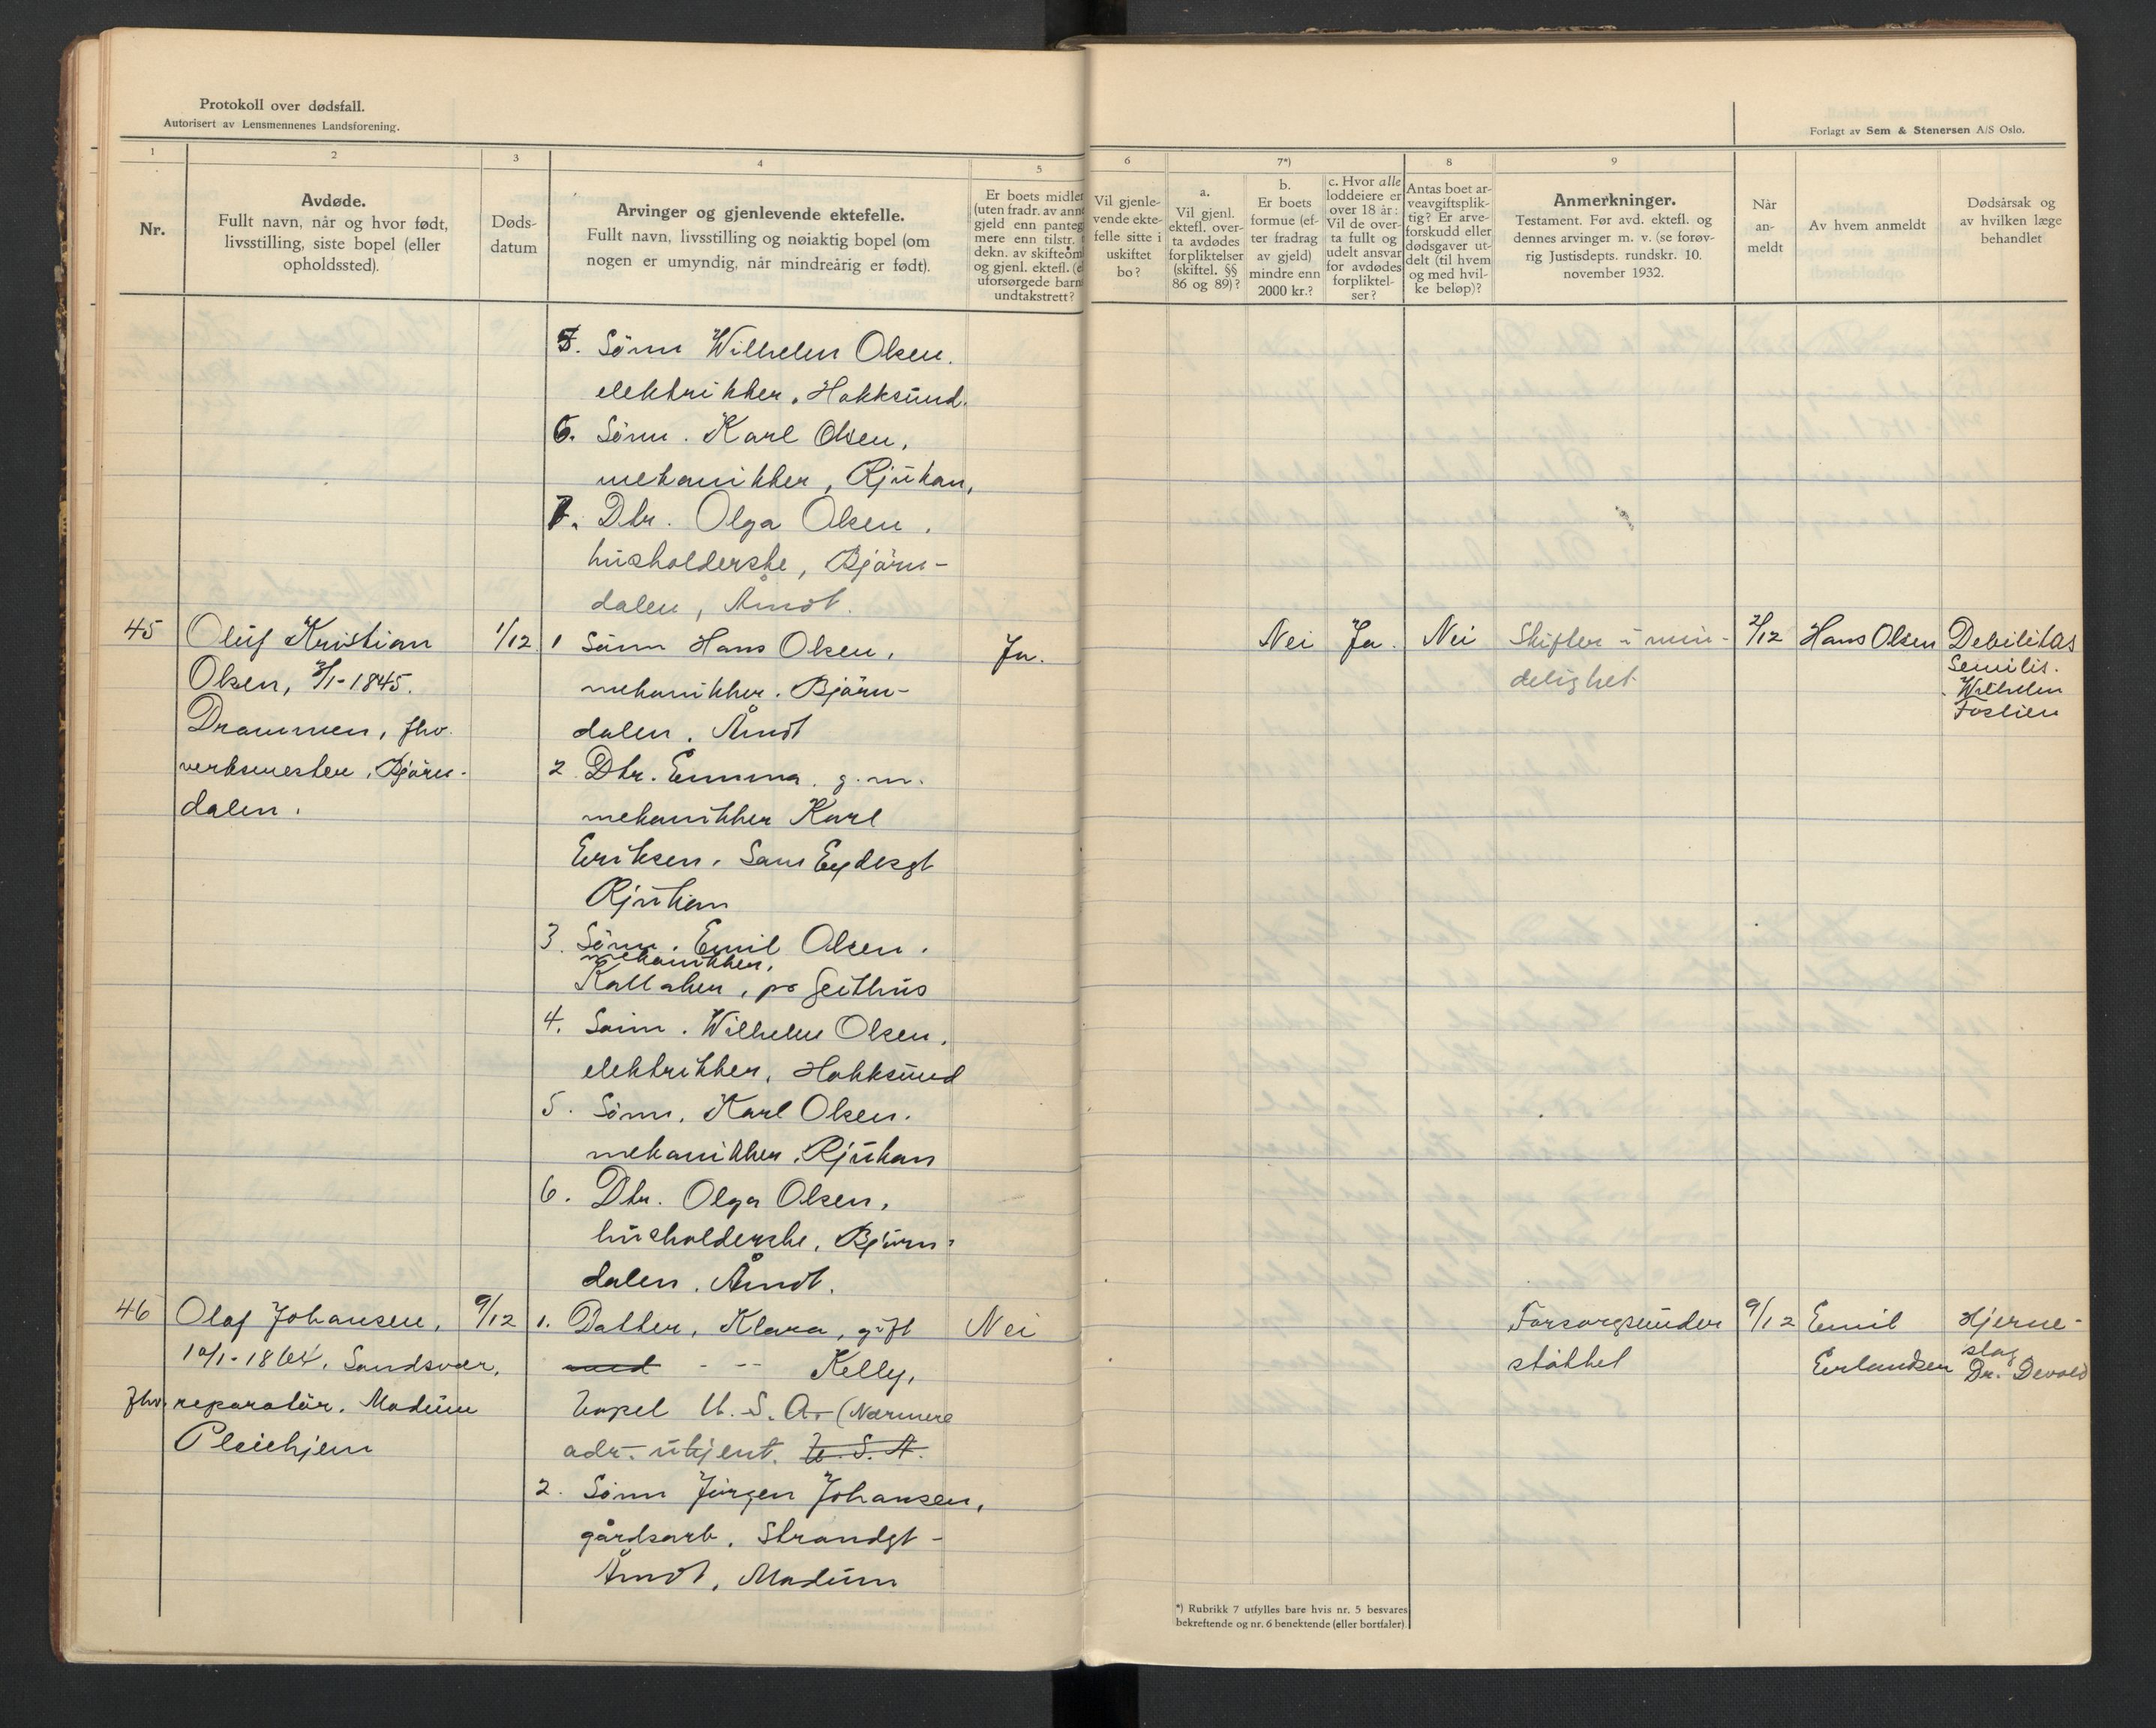 Protokoll over dødsfall.
Autorisert av Lensmennenes Landsforening.
Forlagt av Sem & Stenersen A/S Oslo.
1
2
3
4
5
6
7*)
8
9
Nr.
Avdøde.
Fullt navn, når og hvor født,
livsstilling, siste bopel (eller
opholdssted).
Døds-
datum
Arvinger og gjenlevende ektefelle.
Fullt navn, livsstilling og nøiaktig bopel (om
nogen er umyndig, når mindreårig er født).
Er boets midler
(uten fradr. av
gjeld enn
mere enn tilstr.
dekn. av
og gjenl. ektefl.
uforsørgede barns
undtakstrett?
Vil gjenle-
vende ekte-
felle sitte i
uskiftet
bo?
a.
Vil gjenl.
ektefl. over-
ta avdødes
forpliktelser
(skiftel. §§
86 og 89)?
b.
Er boets
formue (ef-
ter fradrag
av gjeld)
mindre enn
2000 kr.?
c. Hvor alle
loddeiere er
over 18 år:
Vil de over-
ta fullt og
udelt ansvar
for avdødes
forpliktel-
ser?
Antas boet ar-
veavgiftsplik-
tig? Er arve-
forskudd eller
dødsgaver ut-
delt (til hvem
og med hvil-
ke beløp)?
Anmerkninger.
Testament. Før avd. ektefl. og
dennes arvinger m. v. (se forøv-
rig Justisdepts. rundskr. 10.
november 1932.
Når
an-
meldt
Av hvem anmeldt
Dødsårsak og
av hvilken læge
behandlet
5. Sönn Wilhelm Olsen.
elektrikker, Hokksund.
6. Sönn. Karl Olsen,
mekanikker, Rjukan,
7. Dtr. Olga Olsen,
husholderske, Björn-
dalen, Åmot.
45
Oluf Kristian
Olsen, 3/1-1845.
Drammen, fhv.
verksmester, Björn-
dalen.
1/12
1 Sönn Hans Olsen,
mekanikker. Björn-
dalen, Åmot
2. Dtr. Emma, g.m.
mekanikker Karl
Eriksen, Sam Eydesgt
Rjukan
3. Sönn. Emil Olsen.
mekanikker,
Kallaker, pr Geithus
4. Sönn. Wilhelm Olsen,
elektrikker, Hokksund
5. Sönn, Karl Olsen.
mekanikker, Rjukan
6. Dtr. Olga Olsen,
husholderske, Björn-
dalen, Åmot.
Ja.
Nei
Ja.
Nei
Skifter i min-
delighet
2/12
Hans Olsen
Debilitas
Senilis.
Wilhelm
Foslien
46
Olaf Johansen,
10/1-1864, Sandsvær,
fhv. reparatör. Modum
Pleiehjem
9/12
1. Datter, Klara, gift
med - -- Kelly,
bopel U.S.A. (Nærmere
adr. ukjent. U.S.A.
2. Sönn Jörgen Johansen,
gårdsarb. Strandgt-
Åmot, Modum
Nei
Forsorgsunder
støttet
9/12
Emil
Erlandsen
Hjerne-
slag
Dr. Devold
*) Rubrikk 7 utfylles bare hvis nr. 5 besvares
bekreftende og nr. 6 benektende (eller bortfaler)